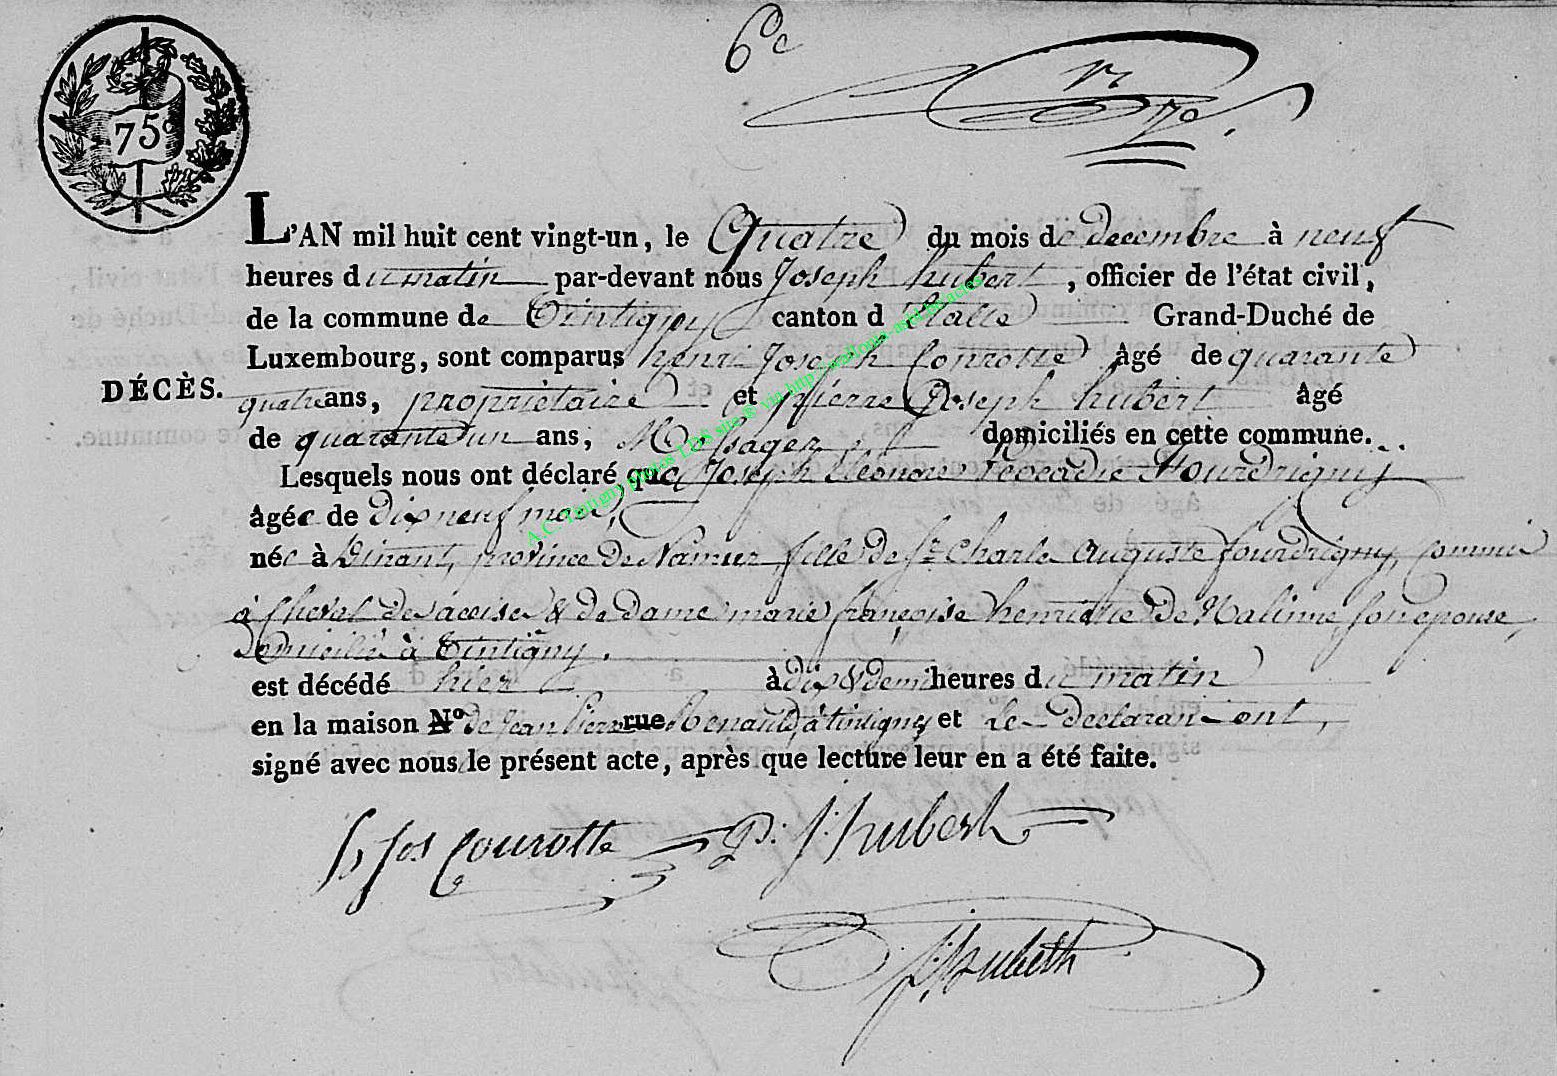 6e
75c
L'AN mil huit cent vingt-un, le Quatre du mois de decembre à neuf
heures du matin par-devant nous Joseph hubert, officier de l'état civil,
de la commune de Tintigny canton d'Etalle Grand-Duché de
Luxembourg, sont comparus henri Joseph Conrotte âgé de quarante
DÉCÈS.
quatre ans, propriétaire et pierre Joseph hubert âgé
de quarante un ans, Messager, domiciliés en cette commune.
Lesquels nous ont déclaré que Joseph Léonore Leocadie Fourdrignij
âgée de dix neuf mois,
née à Dinant, province de Namur, fille de Sr. Charle Auguste fourdrigny, Commis
à cheval des accises & de dame marie françoise henriette de Maline, son epouse,
Domiciliés à Tintigny.
est décédé hier à dix & demi heures du matin
en la maison No de Jean pierre rue Renauld, à tintigny et les declarans ont,
signé avec nous le présent acte, après que lecture leur en a été faite.
h jos Conrotte P: J: hubert
J: hubert
A.C. Tintigny photos LDS site ® via